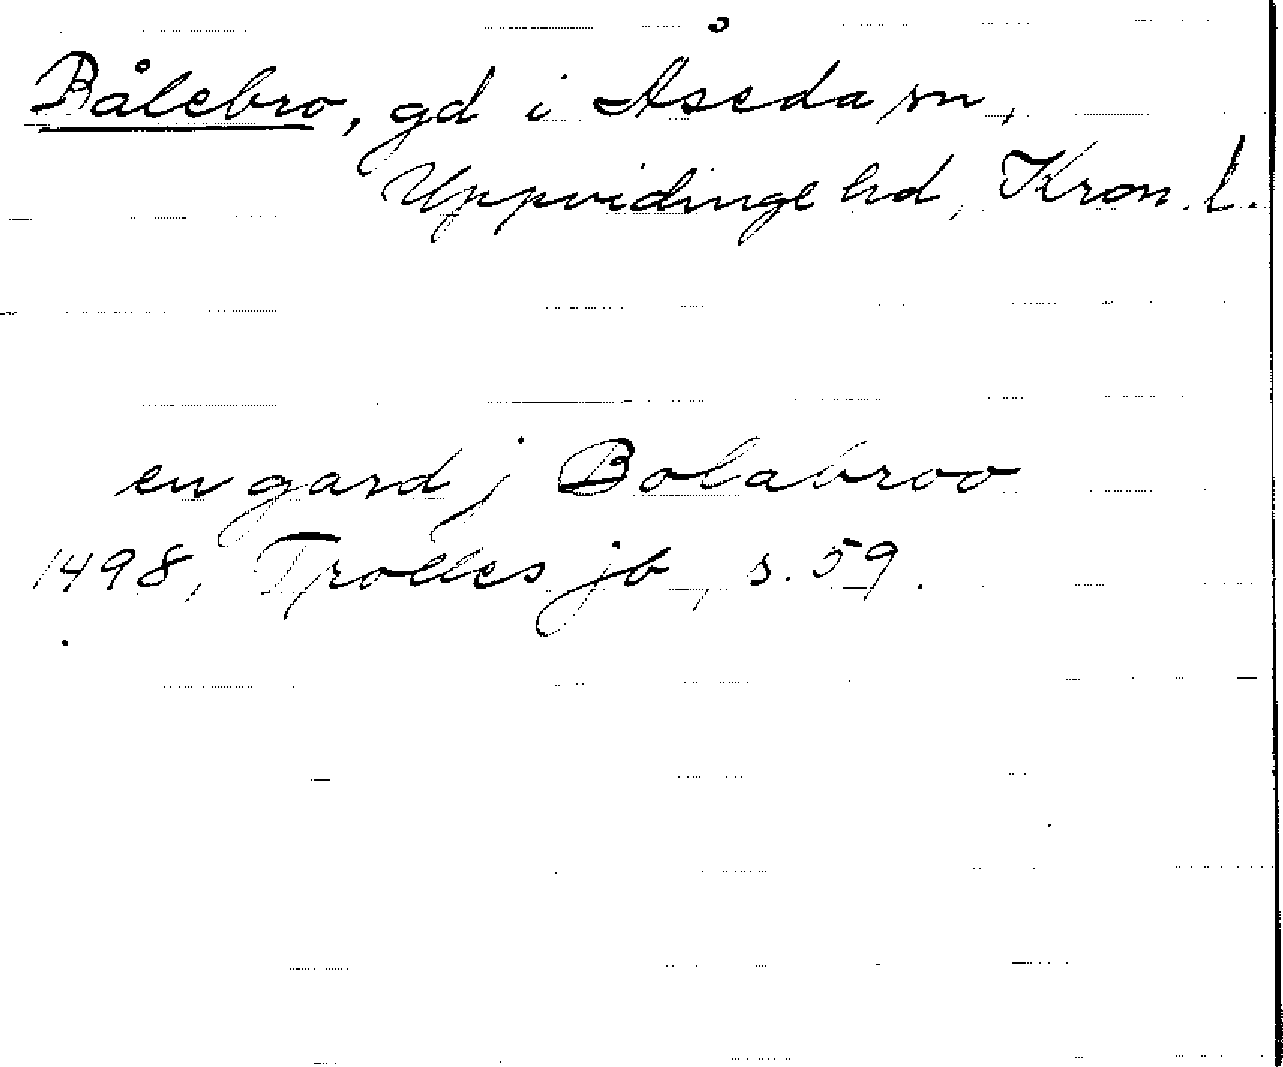 Bålebro, gd i Åseda sn,
Uppvidinge hd, Kron. l.
en gard j Bolabroo
1498, Trolles jb, s. 59.